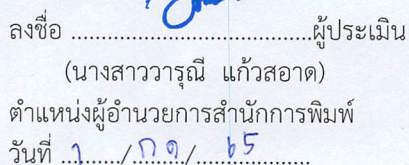 ลงชื่อ ......................................ผู้ประเมิน
(นางสาววารุณี แก้วสอาด)
ตำแหน่งผู้อำนวยการสำนักการพิมพ์
วันที่ ........../........../ 65